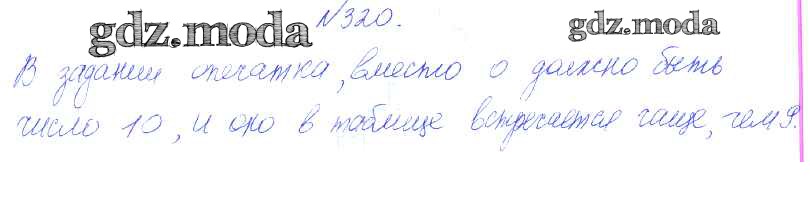 №320.
gdz.moda gdz.moda
В задании опечатка, вместо 0 должно быть
число 10, и оно в таблице встречается чаще, чем 9.